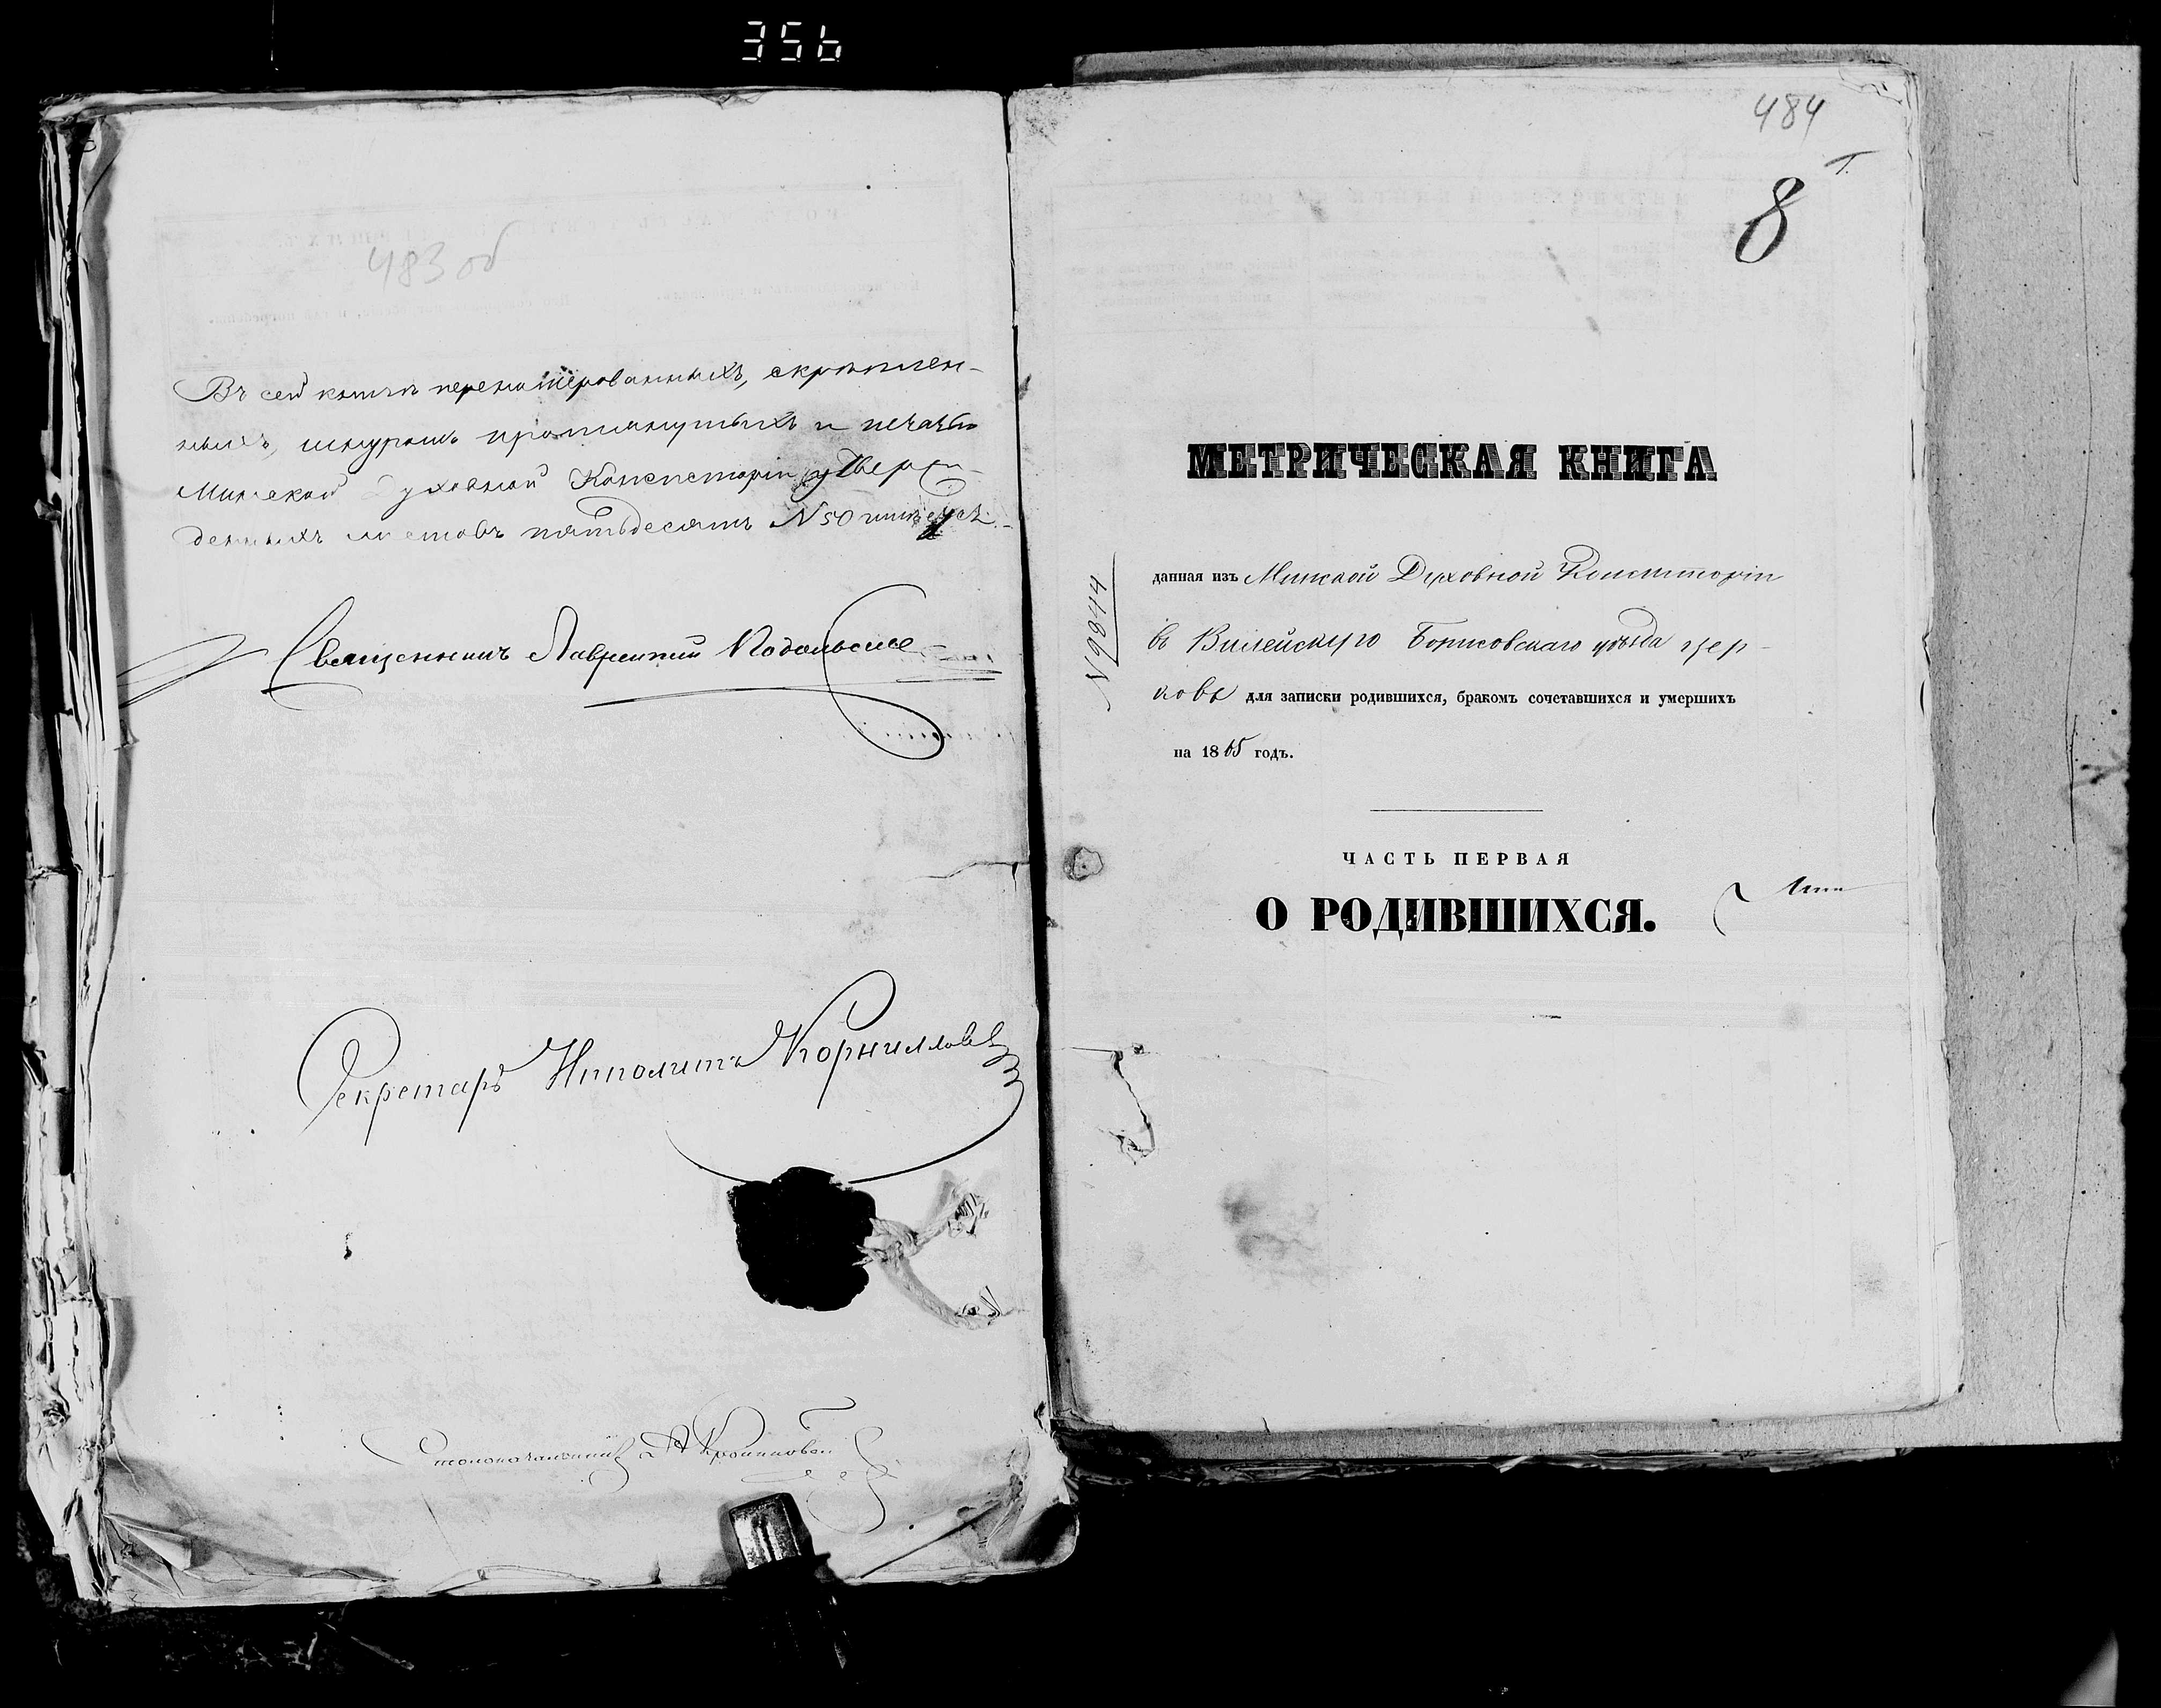 356
483 об
Въ сей книгѣ перенумерованныхъ, скрѣплен-
ныхъ, шнуромъ протянутыхъ и печатью
Минской Духовной Консисторіи утверж-
денныхъ листовъ пятьдесятъ N 50
Священникъ Лаврентій Подольскій
Секретарь Иполитъ Корниловъ
Столоначальникъ
484
8
МЕТРИЧЕСКАЯ КНИГА
N 9844
данная изъ Минской Духовной Консисторіи
въ Борисовскаго уѣзда цер-
ковь для записки родившихся, бракомъ сочетавшихся и умершихъ
на 1865 годъ.
ЧАСТЬ ПЕРВАЯ
О РОДИВШИХСЯ.